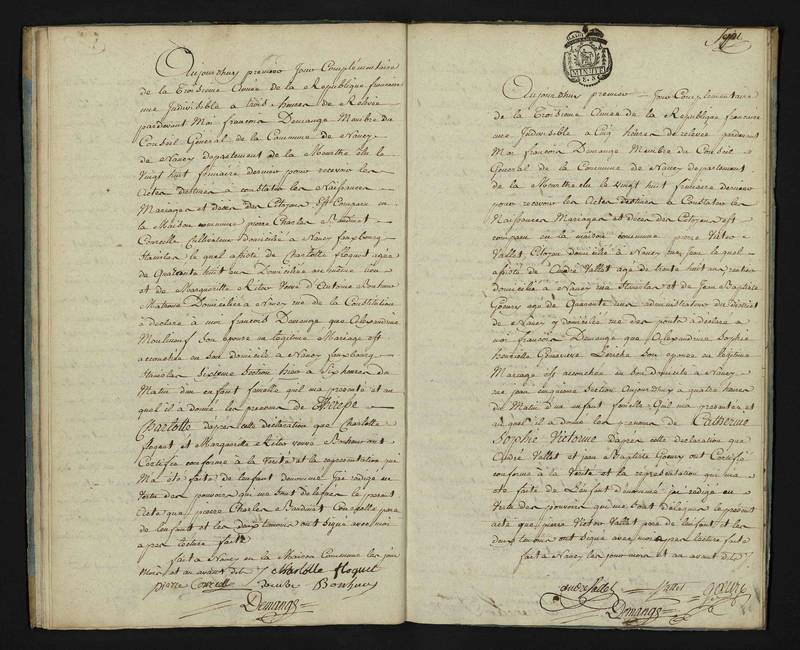 Aujourdhuy premier Jour Complementaire
de la Troisieme Année de la Republique francaise
une Indivisible a trois heures de Relevée
pardevant Moi francois Demange Membre du
Conseil General de la Commune de Nancy
de Nancy departement de la Meurthe élu le
Vingt huit frimaire dernier pour recevoir les
Actes destinés a constater les Naissances
Mariages et décès des Citoyens Est Comparu en
la Maison commune pierre Charles Bardinet
Courcelle Cultivateur domicilié à Nancy fauxbourg
Stanislas le quel assisté de Charlotte floquet agée
de Quarante huit ans Domiciliée au même lieu
et de Marguerite Ritar Veuve d'Antoine Bonhure
Matrone Domiciliée a Nancy rue de la Constitution
a déclaré à moi francois Demange que Alexandrine
Moulineuf Son épouse en légitime Mariage est
accouchée en Son domicile à Nancy fauxbourg
Stanislas Sixieme Section hier à Six heures du
Matin d'un enfant femelle qu'il m'a presenté et au
quel il a donné les prenoms de
Charlotte d'apres cette declaration que Charlotte
floquet et Marguerite Ritar veuve Bonhure ont
Certifiée conforme à la Verité et la representation qui
M'a été faite de l'enfant denommé J'ai redigé en
Vertu des pouvoirs qui me sont delegués le present
Acte que pierre Charles Bardinet Courcelle pere
de l'enfant et les deux temoins ont Signé avec moi
apres lecture faite
fait à Nancy en la Maison Commune les jour
Mois et an avant dits Charlotte floquet
pierre Courcelle Bonhure
Demange
MINUTE
Aujourdhuy premier Jour Complementaire
de la Troisieme Annee de la Republique francaise
une Indivisible a Cinq heures de relevée pardevant
Moi francois Demange Membre du Conseil
General de la Commune de Nancy departement
de la Meurthe élu le Vingt huit frimaire dernier
pour recevoir les Actes destinés a Constater les
Naissances Mariages et décès des Citoyens est
comparu en la maison commune pierre Victor
Vallet Citoyen domicilié à Nancy rue Jean lequel
assisté de André Vallet agé de trente huit ans rentier
domicilié à Nancy rue Stanislas et de Jean Baptiste
Goeury agé de Quarante ans administrateur du district
de Nancy y domicilié rue des ponts a déclaré a
moi francois Demange que Alexandrine Sophie
Genevieve Leriche Son épouse en legitime
Mariage est accouchée en Son domicile à Nancy
rue jean cinquieme Section Aujourdhuy à quatre heures
du Matin d'un enfant femelle Qu'il m'a presenté et
au quel il a donné les prenoms de Catherine
Sophie Victorine D'apres cette declaration que
André Vallet et jean Baptiste Goeury ont Certifié
conforme à la Verité et la représentation qui m'a
été faite de L'enfant denommé j'ai redigé en
Vertu des pouvoirs qui me sont délégués le present
acte que pierre Victor Vallet pere de l'enfant et les
deux temoins ont Signé avec moi apres lecture faite
fait à Nancy les jour mois et an avant dits
andré Vallet Vallet Goeury
Demange